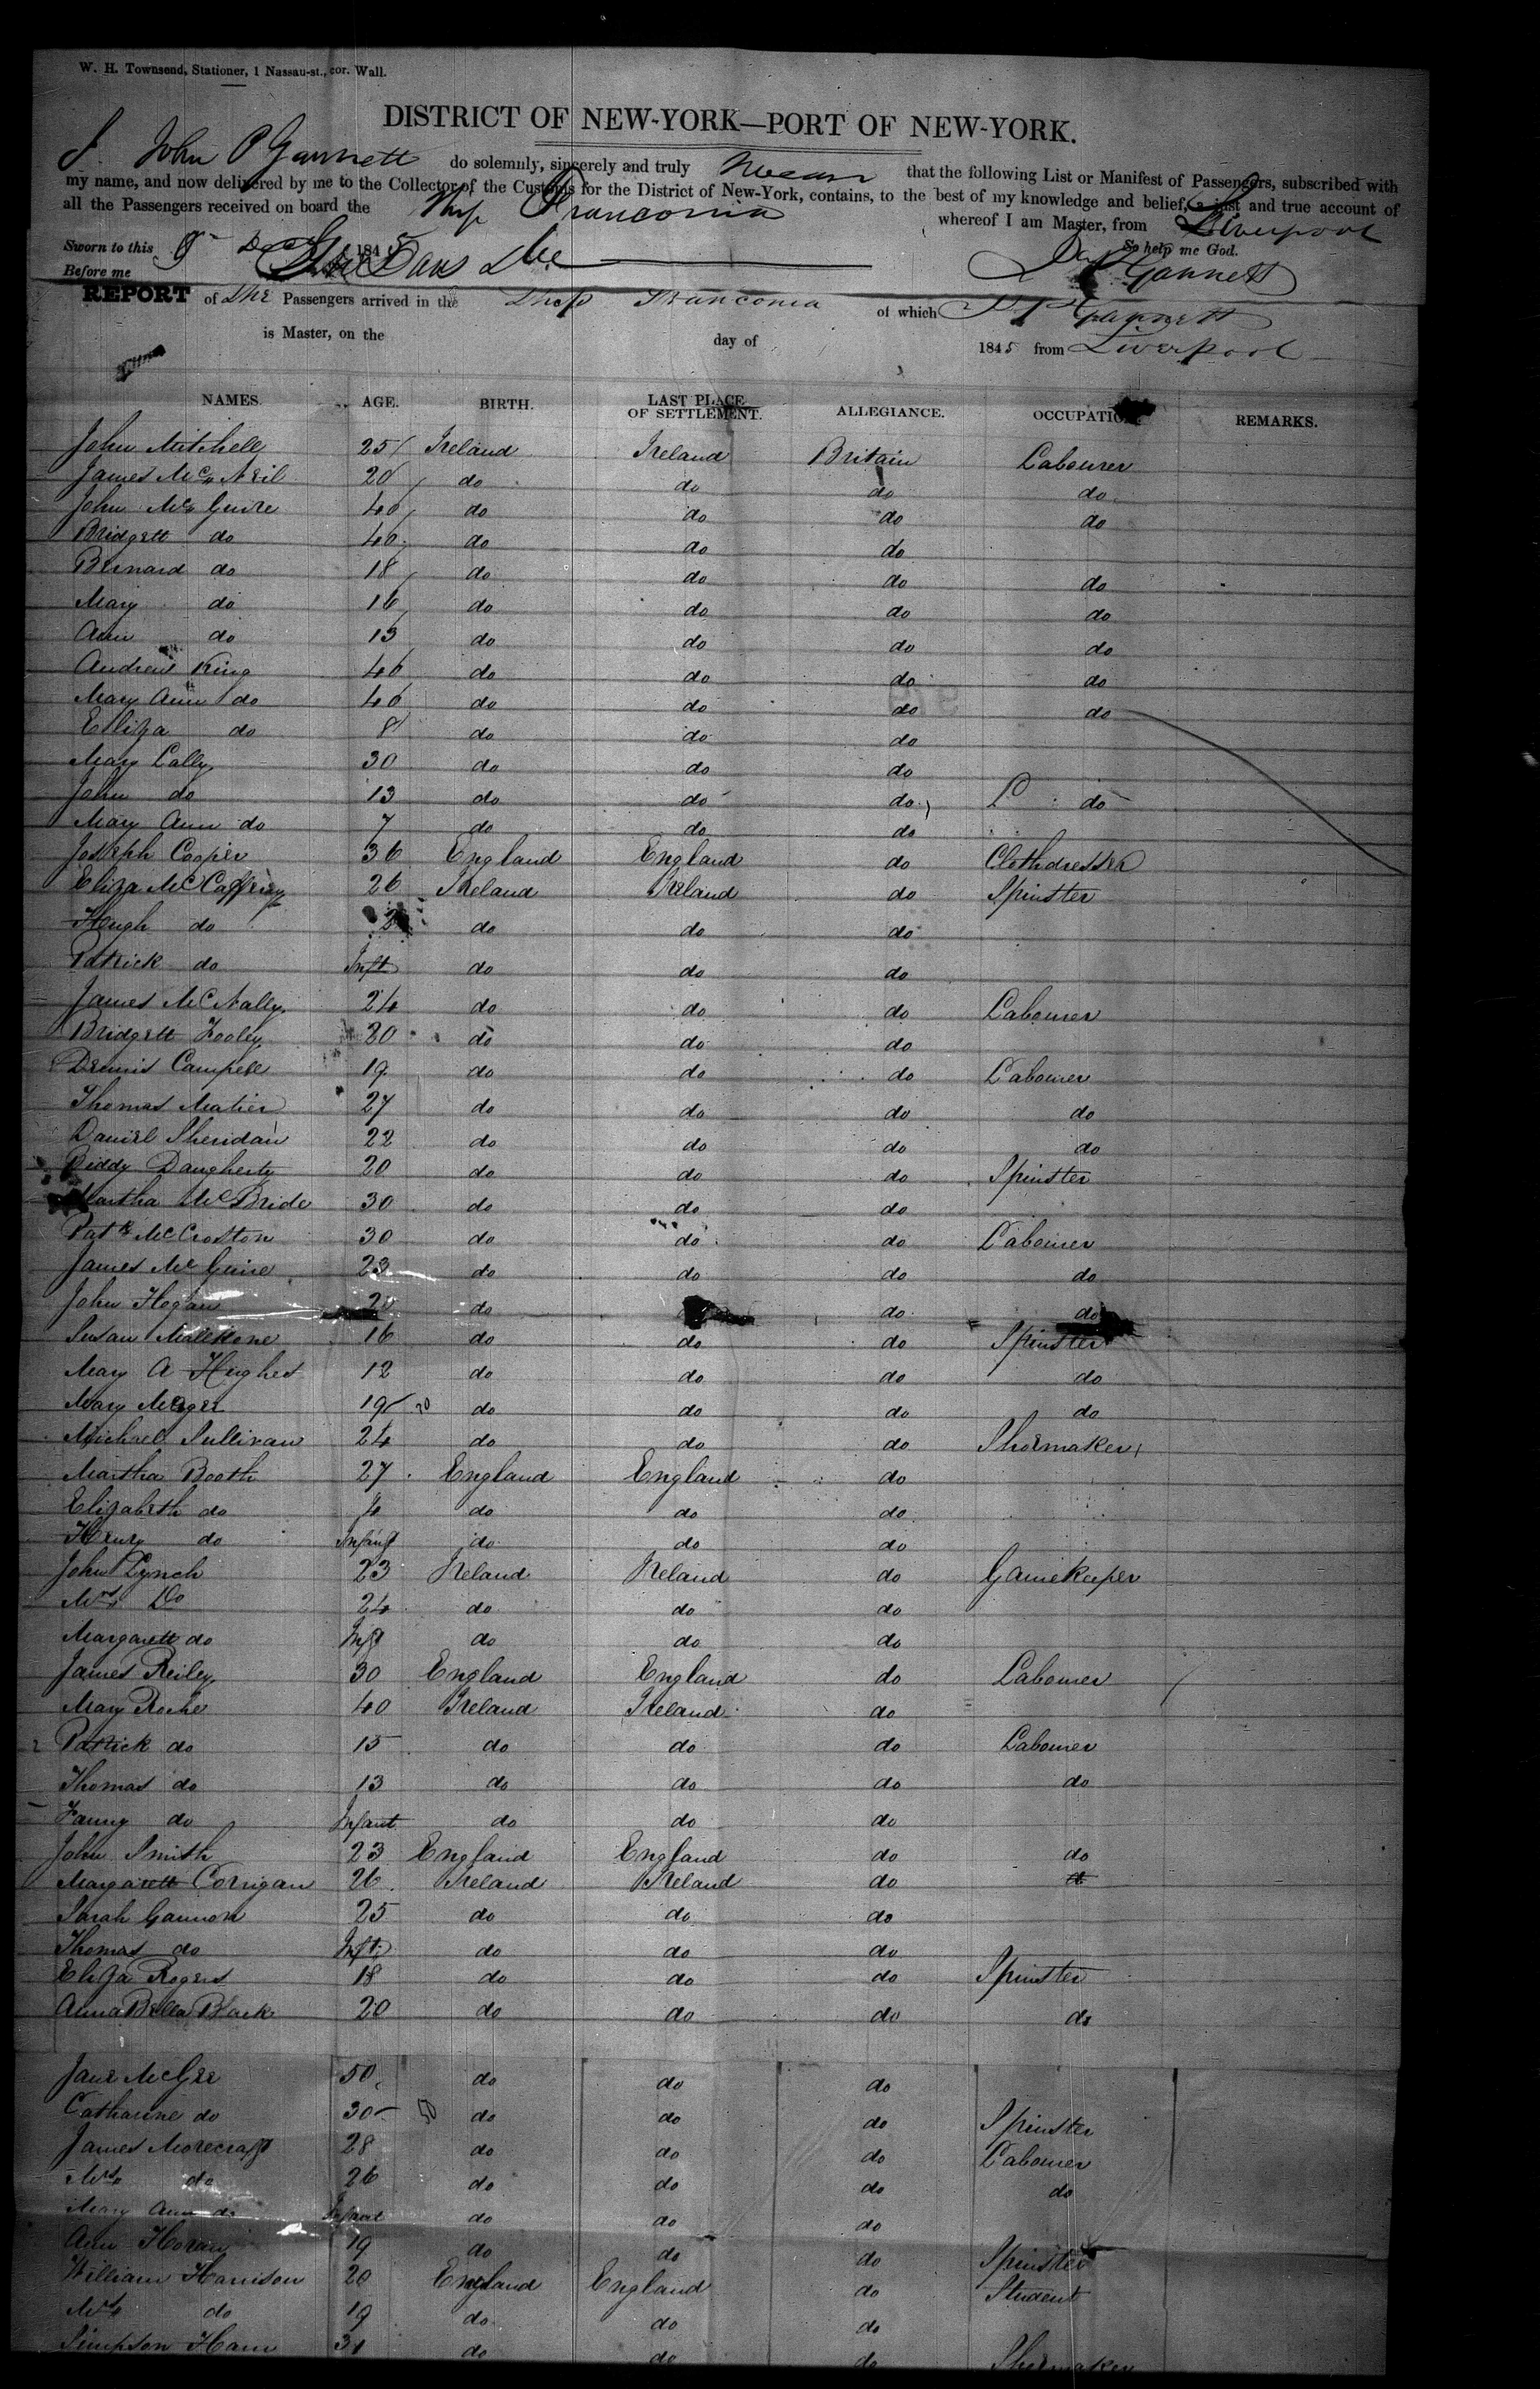 W. H. Townsend, Stationer, 1 Nassau-st., cor. Wall.
DISTRICT OF NEW-YORK—PORT OF NEW-YORK.
I John P Gannett do solemnly, sincerely and truly swear that the following List or Manifest of Passengers, subscribed with
my name, and now delivered by me to the Collector of the Customs for the District of New-York, contains, to the best of my knowledge and belief, a just and true account of
all the Passengers received on board the Ship Franconia whereof I am Master, from Liverpool
Sworn to this 9 Dec 1845 So help me God.
Before me Gannett
REPORT of the Passengers arrived in the Ship Franconia of which J P Gannett
is Master, on the day of 1845 from Liverpool
NAMES. AGE. BIRTH. LAST PLACE OF SETTLEMENT. ALLEGIANCE. OCCUPATION REMARKS.
John Mitchell 25 Ireland Ireland Britain Labourer
James McNeil 20 do do do do
John McGuire 40 do do do do
Bridgett do 40 do do do
Bernard do 18 do do do do
Mary do 16 do do do do
Ann do 13 do do do do
Andrew King 40 do do do do
Mary Ann do 40 do do do do
Eliza do 8 do do do
Mary Lally 30 do do do
John do 13 do do do L do
Mary Ann do 7 do do do
Joseph Cooper 36 England England do Clothdresser
Eliza McCaffrey 26 Ireland Ireland do Spinster
Hugh do 2 do do do
Patrick do Inft do do do
James McNally 24 do do do Labourer
Bridgett Fooley 20 do do do
Dennis Campell 19 do do do Labourer
Thomas Matier 27 do do do do
Daniel Sheridan 22 do do do do
Biddy Daugherty 20 do do do Spinster
Martha McBride 30 do do do
Patk McCroston 30 do do do Labourer
James McGuire 23 do do do do
John Hogan 20 do do do
Susan 16 do do do Spinster
Mary A Hughes 12 do do do do
Mary 19 20 do do do do
Michael Sullivan 24 do do do Shoemaker
Martha Booth 27 England England do
Elizabeth do do do do
Henry do Infant do do do
John Lynch 23 Ireland Ireland do Gamekeeper
Mrs Do 24 do do do
Margarett do Inft do do do
James Reiley 30 England England do Labourer
Mary Roche 40 Ireland Ireland do
Patrick do 15 do do do Labourer
Thomas do 13 do do do do
Fanny do Infant do do do
John Smith 23 England England do do
Margarett Corrigan 26 Ireland Ireland do
Sarah Gannon 25 do do do
Thomas do Inft do do do
Eliza Rogers 18 do do do Spinster
Anna Bella Black 20 do do do do
Jane McGee 50 do do do
Catharine do 30 50 do do do Spinster
James Morecraft 28 do do do Labourer
Mrs do 26 do do do do
Mary Ann do Infant do do do
Ann Horan 19 do do do Spinster
William Harrison 20 England England do Student
Mrs do 19 do do do
Simpson Ham 31 do do do Shoemaker